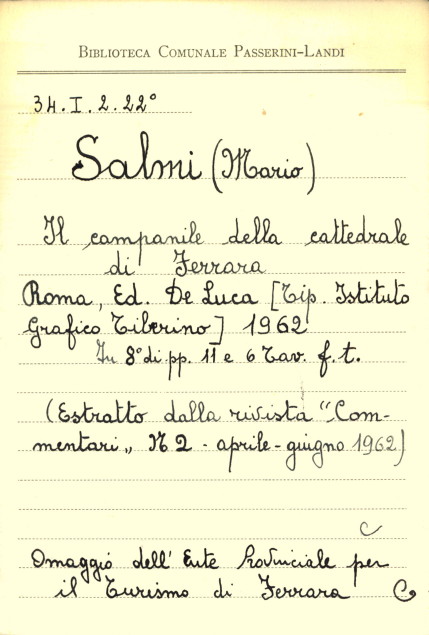 BIBLIOTECA COMUNALE PASSERINI-LANDI
34.I.2.22°
Salmi (Mario)
Il campanile della cattedrale
di Ferrara
Roma, Ed. De Luca [Tip. Istituto
Grafico Tiberino] 1962
In 8° di pp. 11 e 6 Tav. f. t.
(Estratto dalla rivista "Com-
mentari„ N 2 - aprile - giugno 1962)
C
Omaggio dell' Ente Provinciale per
il Turismo di Ferrara C